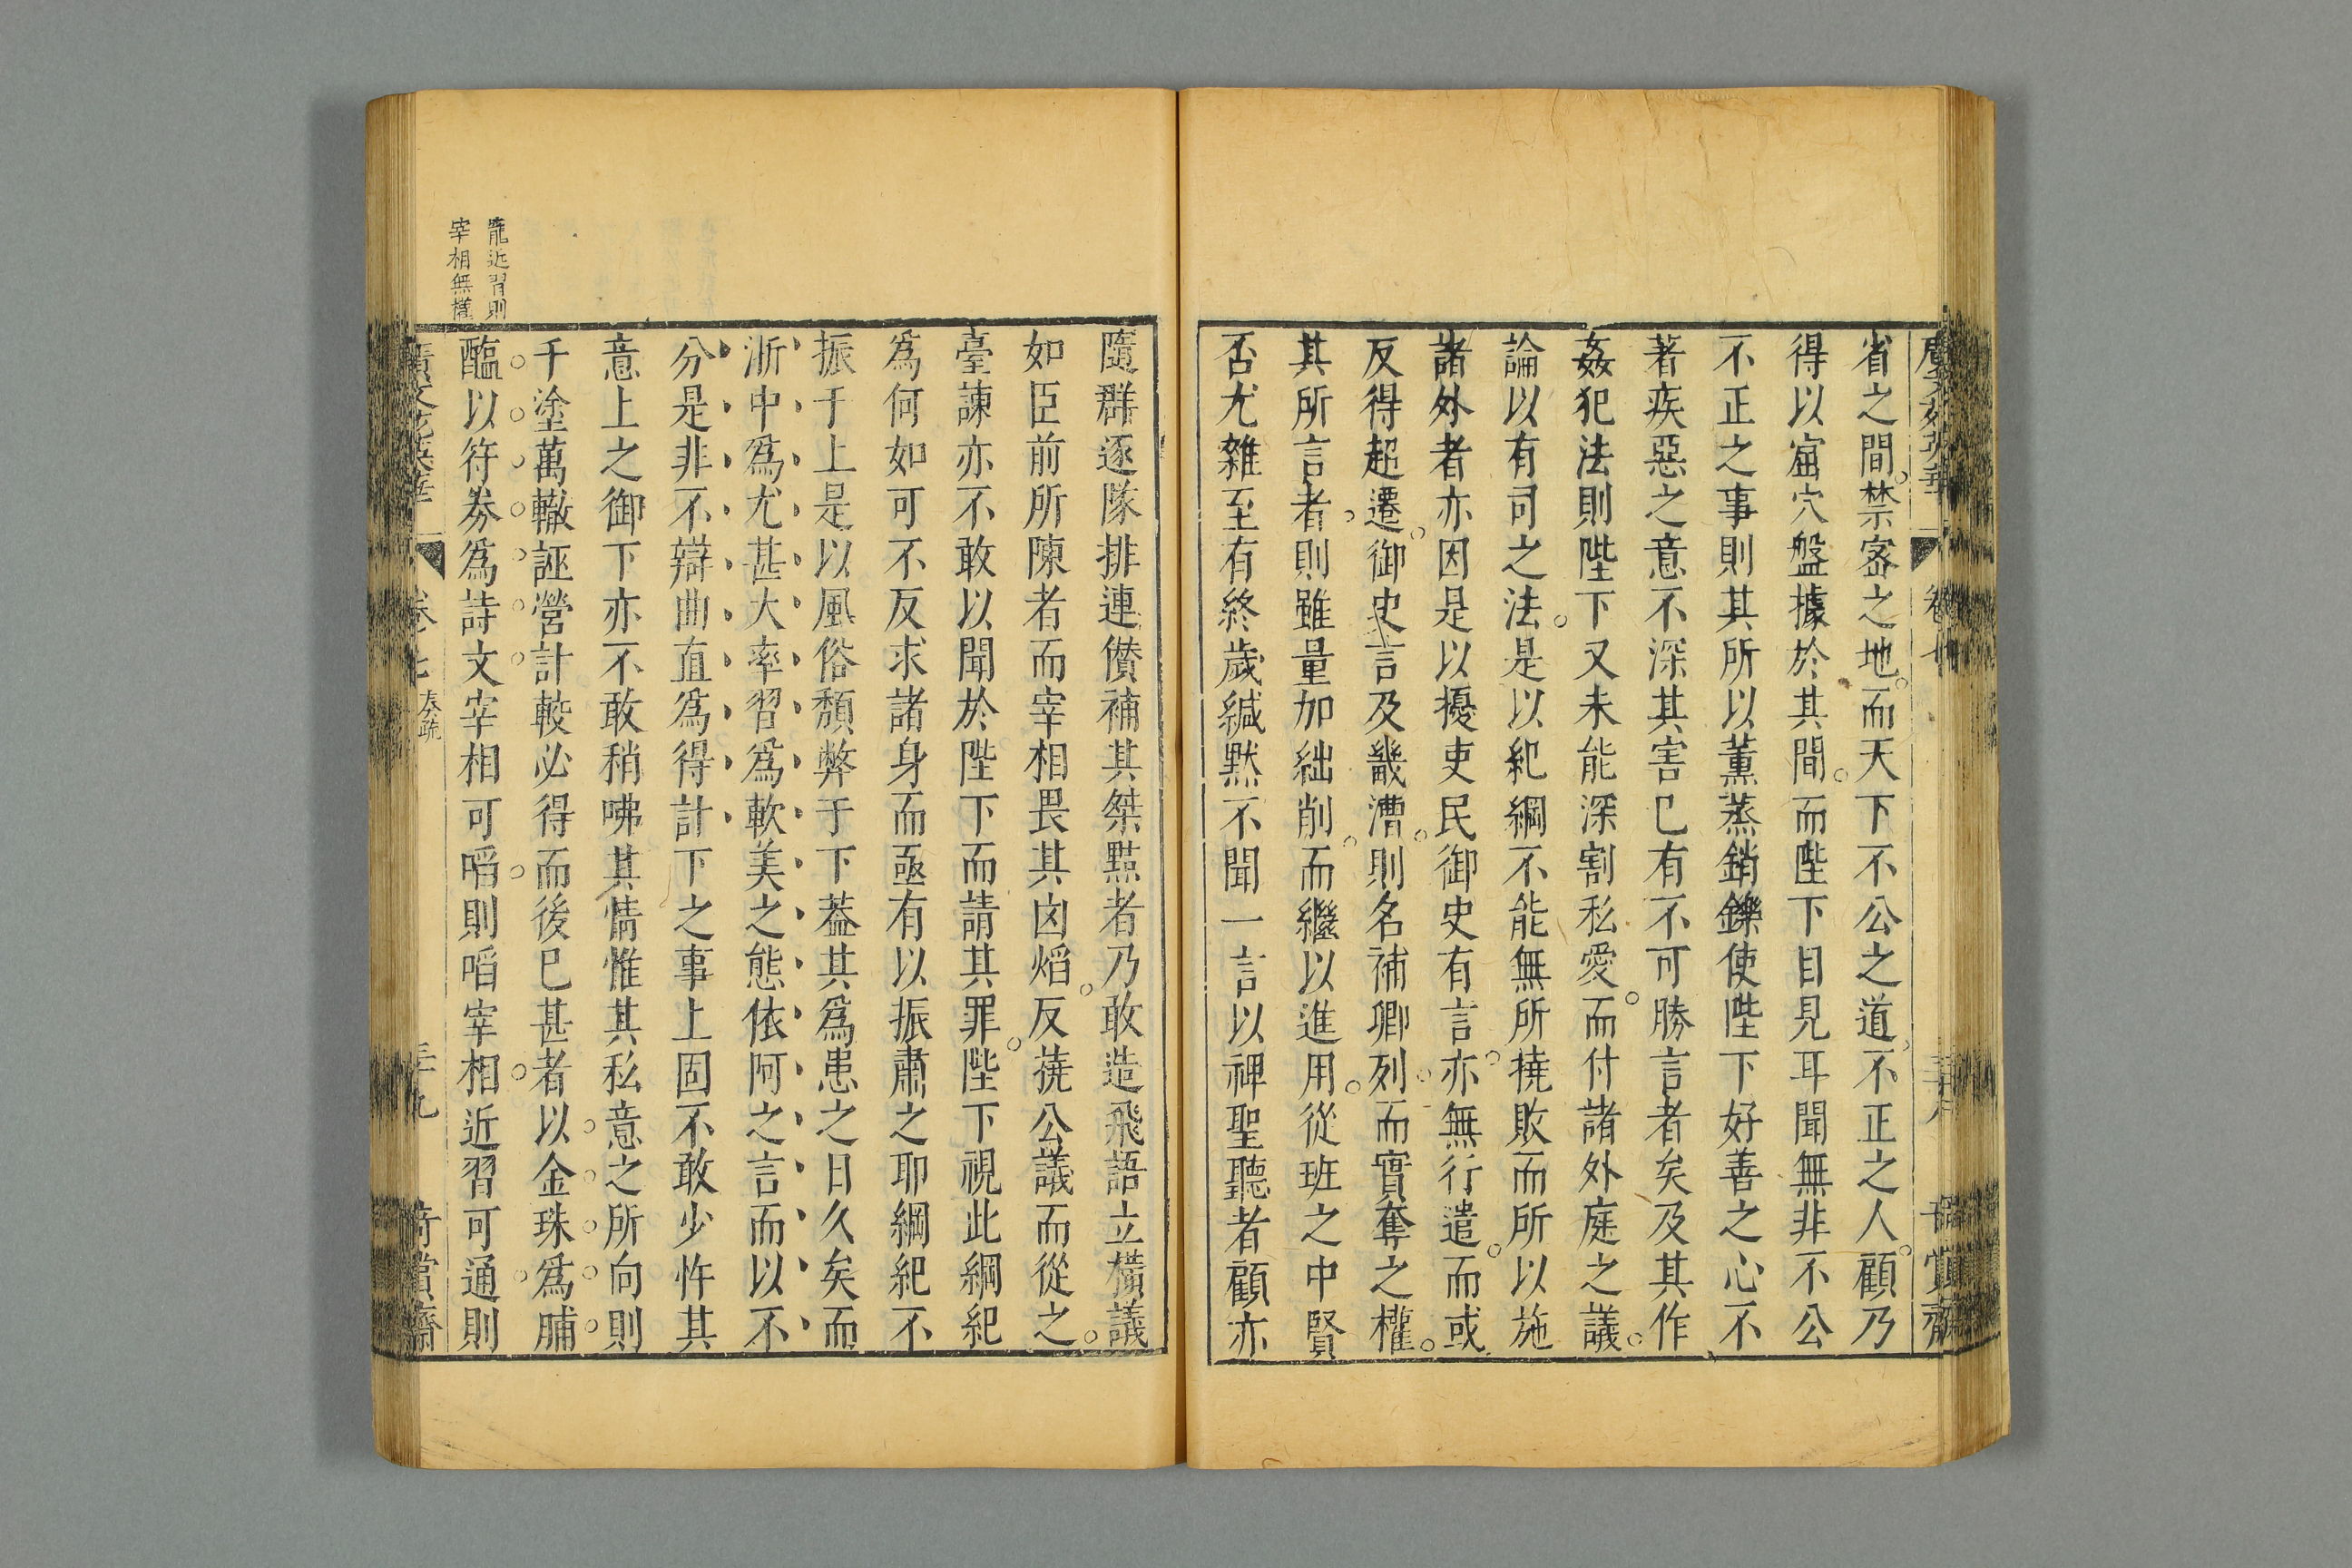 省之間禁密之地而天下不公之道不正之人顧乃
得以窟穴盤據於其間而陛下目見耳聞無非不公
不正之事則其所以薰蒸銷鑠使陛下好善之心不
著疾惡之意不深其害已有不可勝言者矣及其作
姦犯法則陛下又未能深割私愛而付諸外庭之議
論以有司之法是以紀綱不能無所撓敗而所以施
諸外者亦因是以擾吏民御史有言亦無行遣而或
反得超遷御史言及畿漕則名補卿列而實奪之權
其所言者則雖量加絀削而繼以進用從班之中賢
否尤雜至有終歲緘默不聞一言以裨聖聽者顧亦
隨群逐隊排連儹補其桀黠者乃敢造飛語立橫議
如臣前所陳者而宰相畏其凶焰反撓公議而從之
臺諫亦不敢以聞於陛下而請其罪陛下視此綱紀
爲何如可不反求諸身而亟有以振肅之耶綱紀不
振于上是以風俗頹弊于下葢其爲患之日久矣而
浙中爲尤甚大率習爲軟美之態依阿之言而以不
分是非不辯曲直爲得計下之事上固不敢少忤其
意上之御下亦不敢稍咈其情惟其私意之所向則
千塗萬轍誣營計較必得而後已甚者以金珠爲脯
醢以符券爲詩文宰相可啗則啗宰相近習可通則
寵近習則
宰相無權
廣文苑英華 卷七 奏疏 三十九